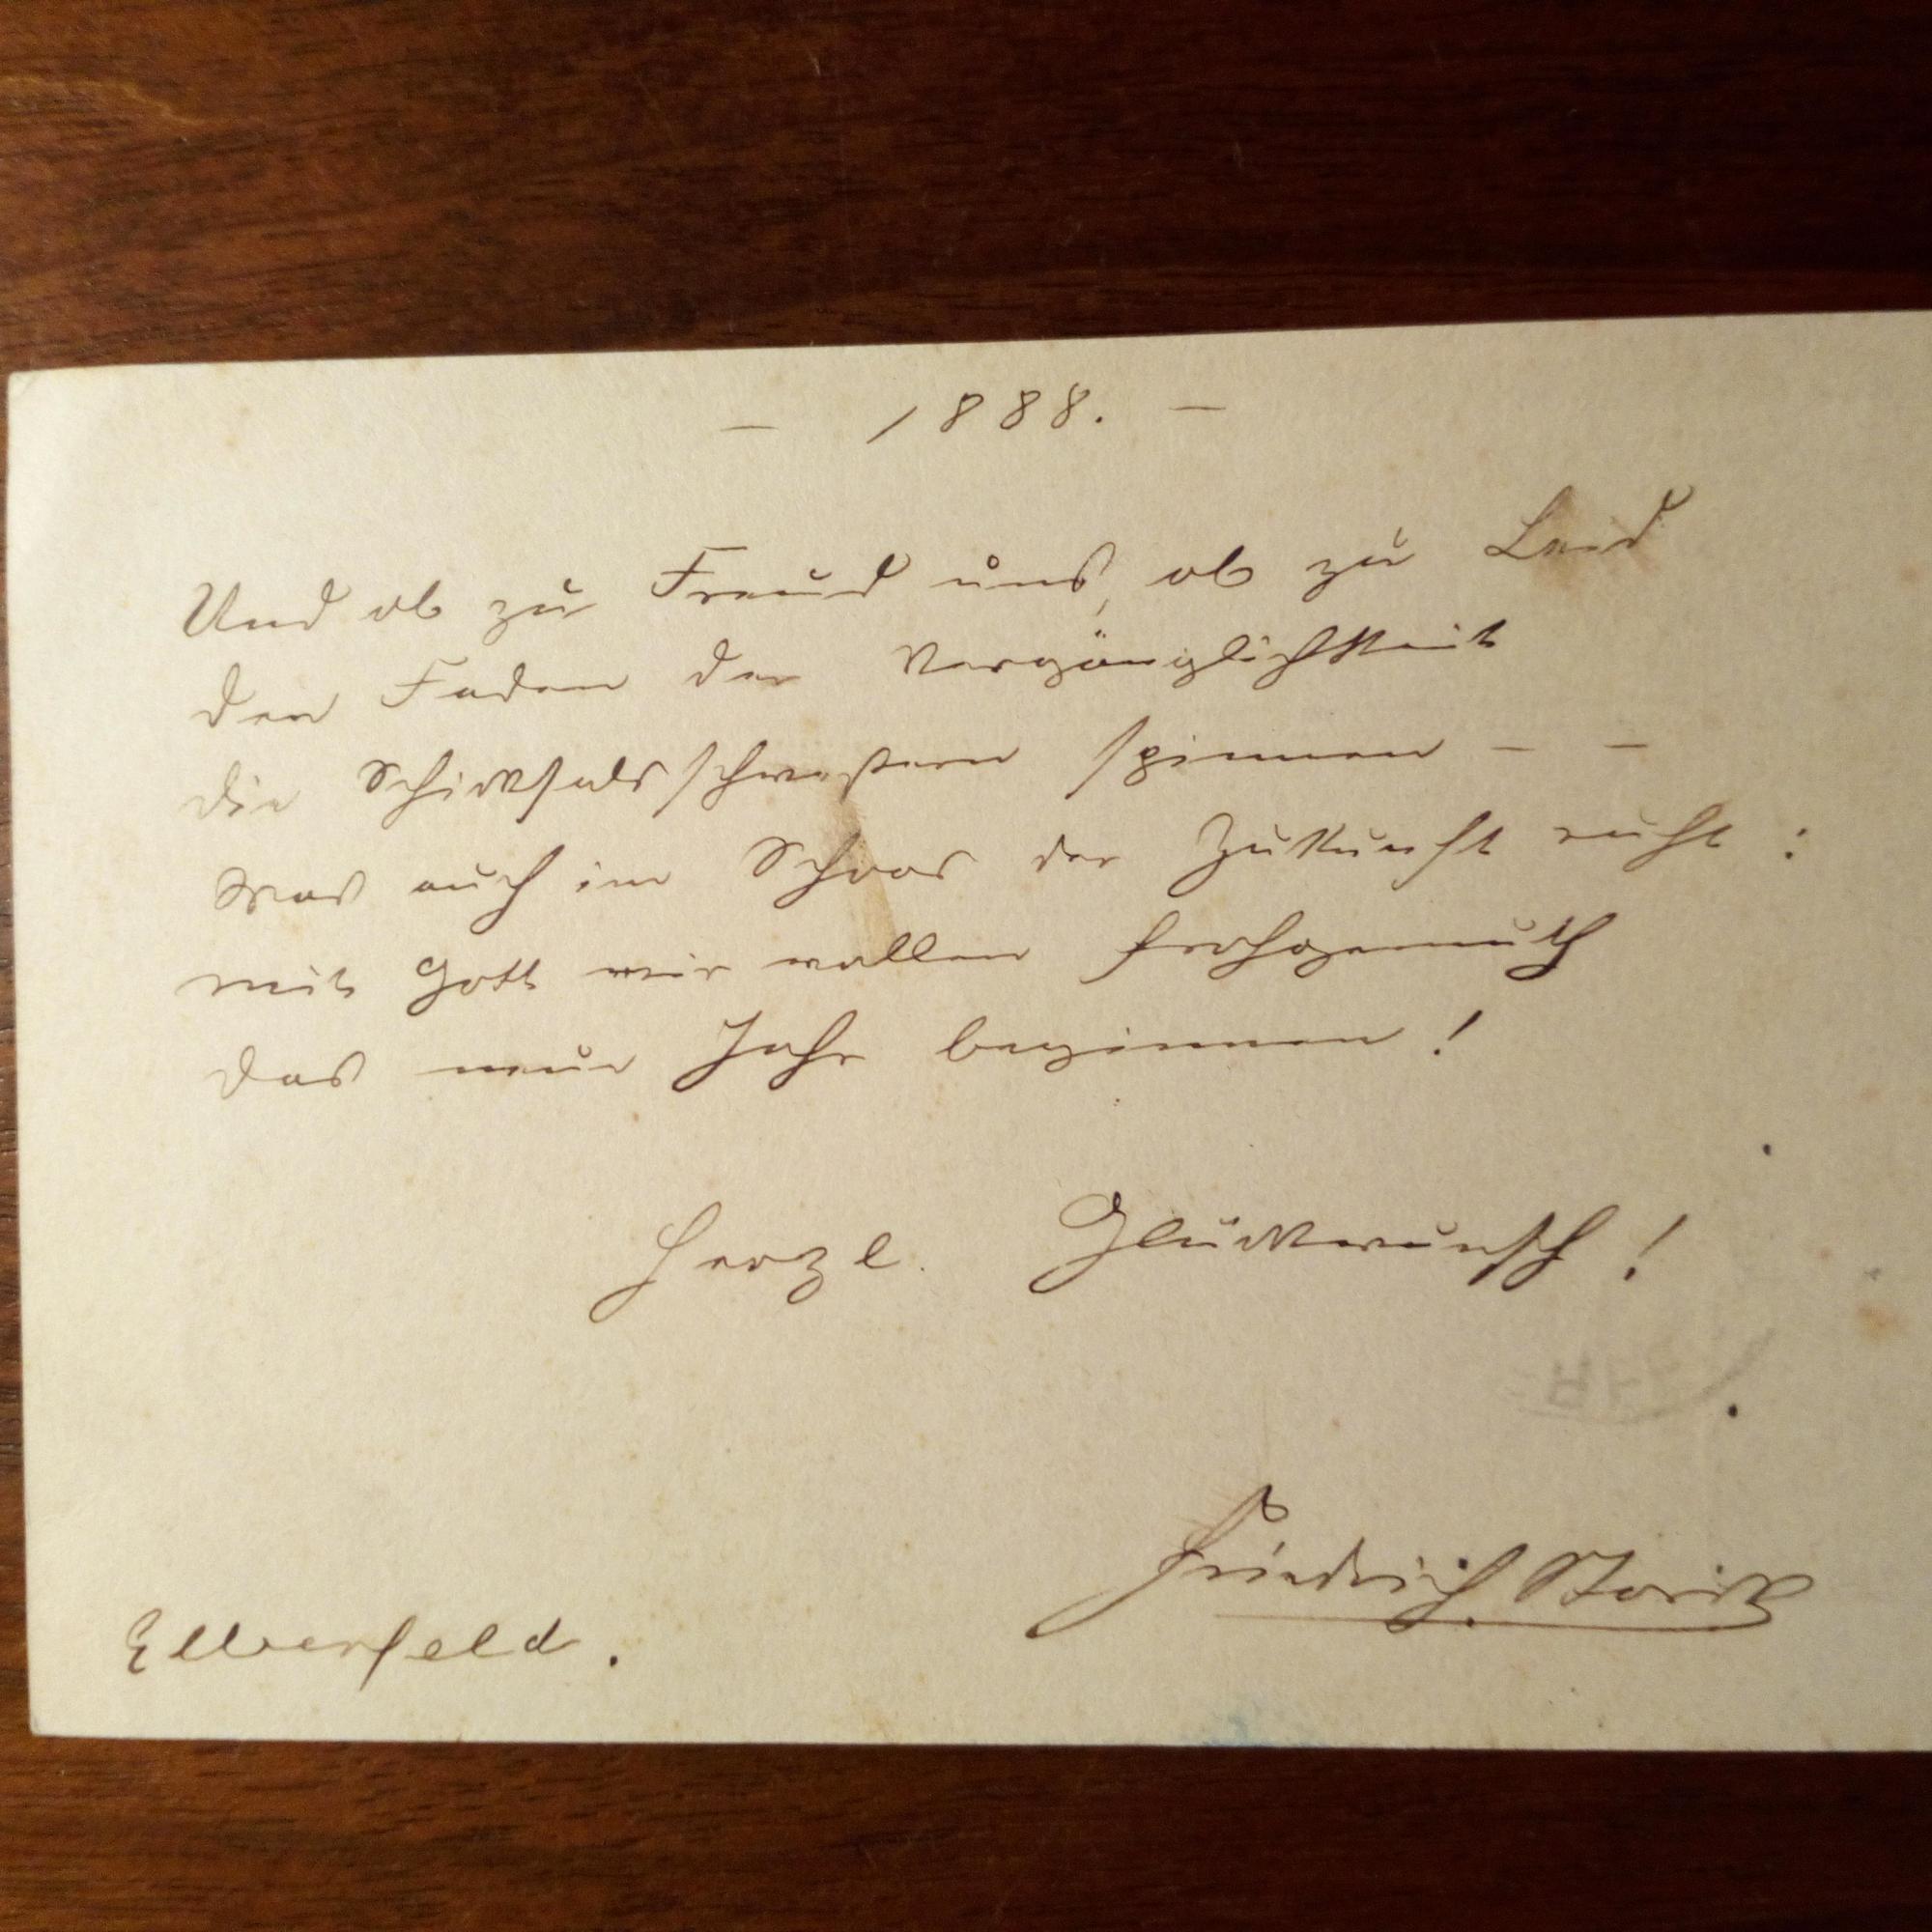 – 1888. –
Und ob zu Freud uns, ob zu Leid
den Faden der Vergänglichkeit
die Schicksalsschwestern spinnen – –
Was auch im Schoos der Zukunft ruht:
mit Gott wir wollen frohgemuth
das neue Jahr beginnen!
Herzl. Glückwunsch!
Friedrich Storck
Elberfeld.